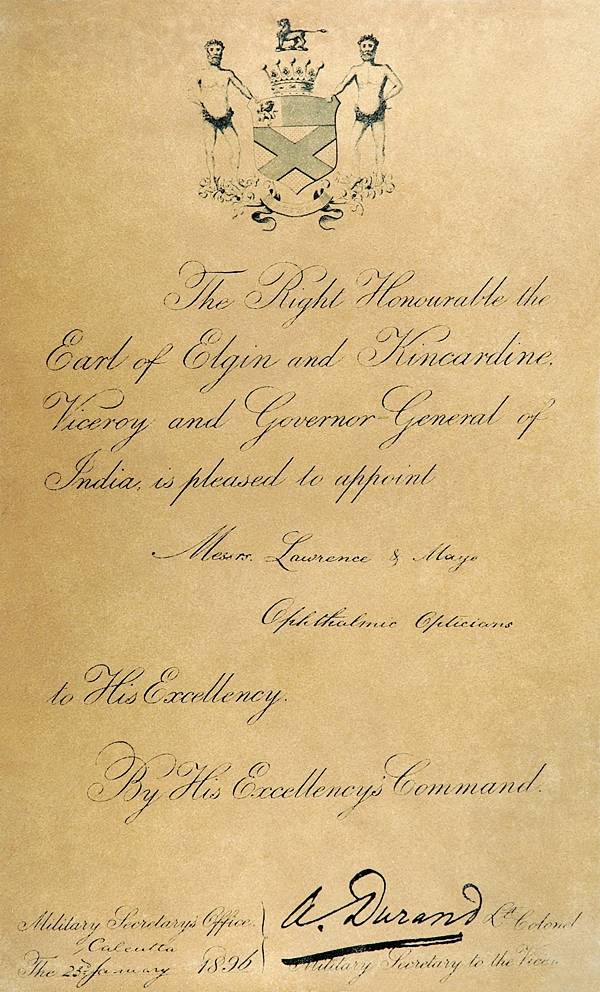 The Right Honourable the
Earl of Elgin and Kincardine,
Viceroy and Governor-General of
India, is pleased to appoint
Messrs. Lawrence & Mayo
Ophthalmic Opticians
to His Excellency.
By His Excellency's Command.
A. Durand Lt. Colonel
Military Secretary's Office,
Calcutta
The 25th January 1896
Military Secretary to the